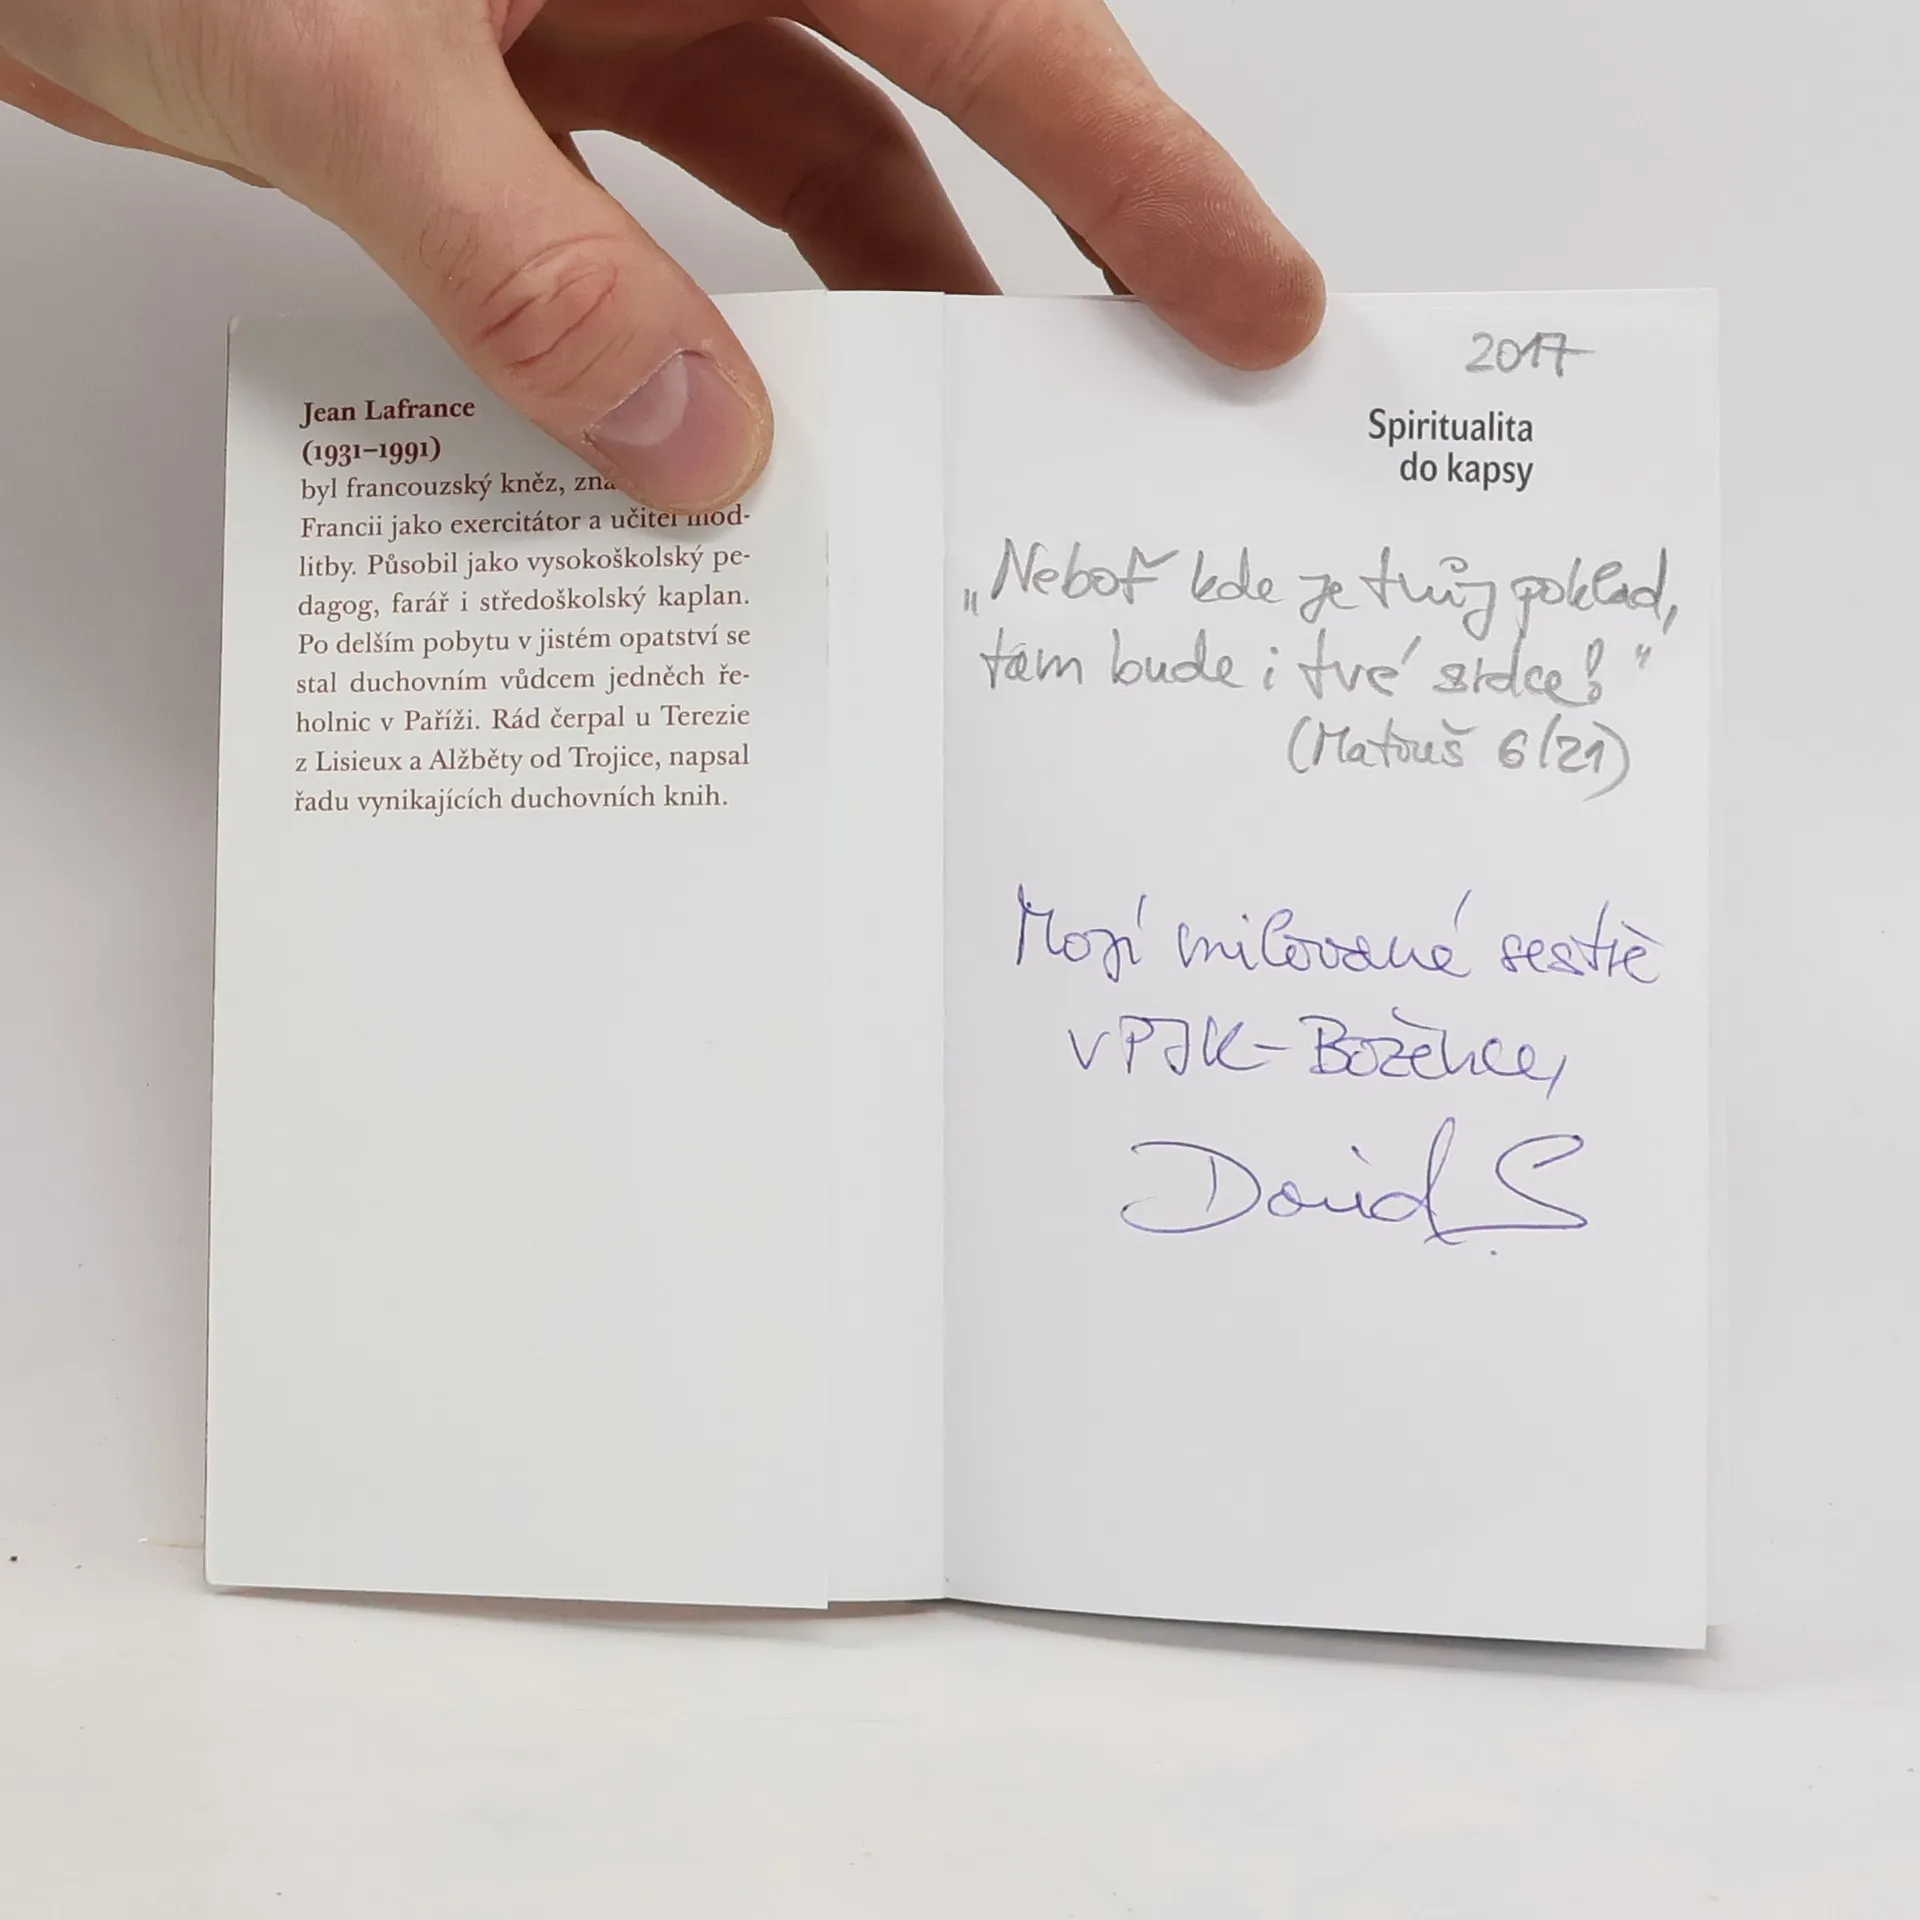 Jean Lafrance
(1931–1991)
byl francouzský kněz,
Francii jako exercitátor a učitel mod-
litby. Působil jako vysokoškolský pe-
dagog, farář i středoškolský kaplan.
Po delším pobytu v jistém opatství se
stal duchovním vůdcem jedněch ře-
holnic v Paříži. Rád čerpal u Terezie
z Lisieux a Alžběty od Trojice, napsal
řadu vynikajících duchovních knih.
2017
Spiritualita
do kapsy
„Neboť kde je tvůj poklad,
tam bude i tvé srdce!"
(Matouš 6/21)
Mojí milované sestře
v PJK – Božence,
David S.